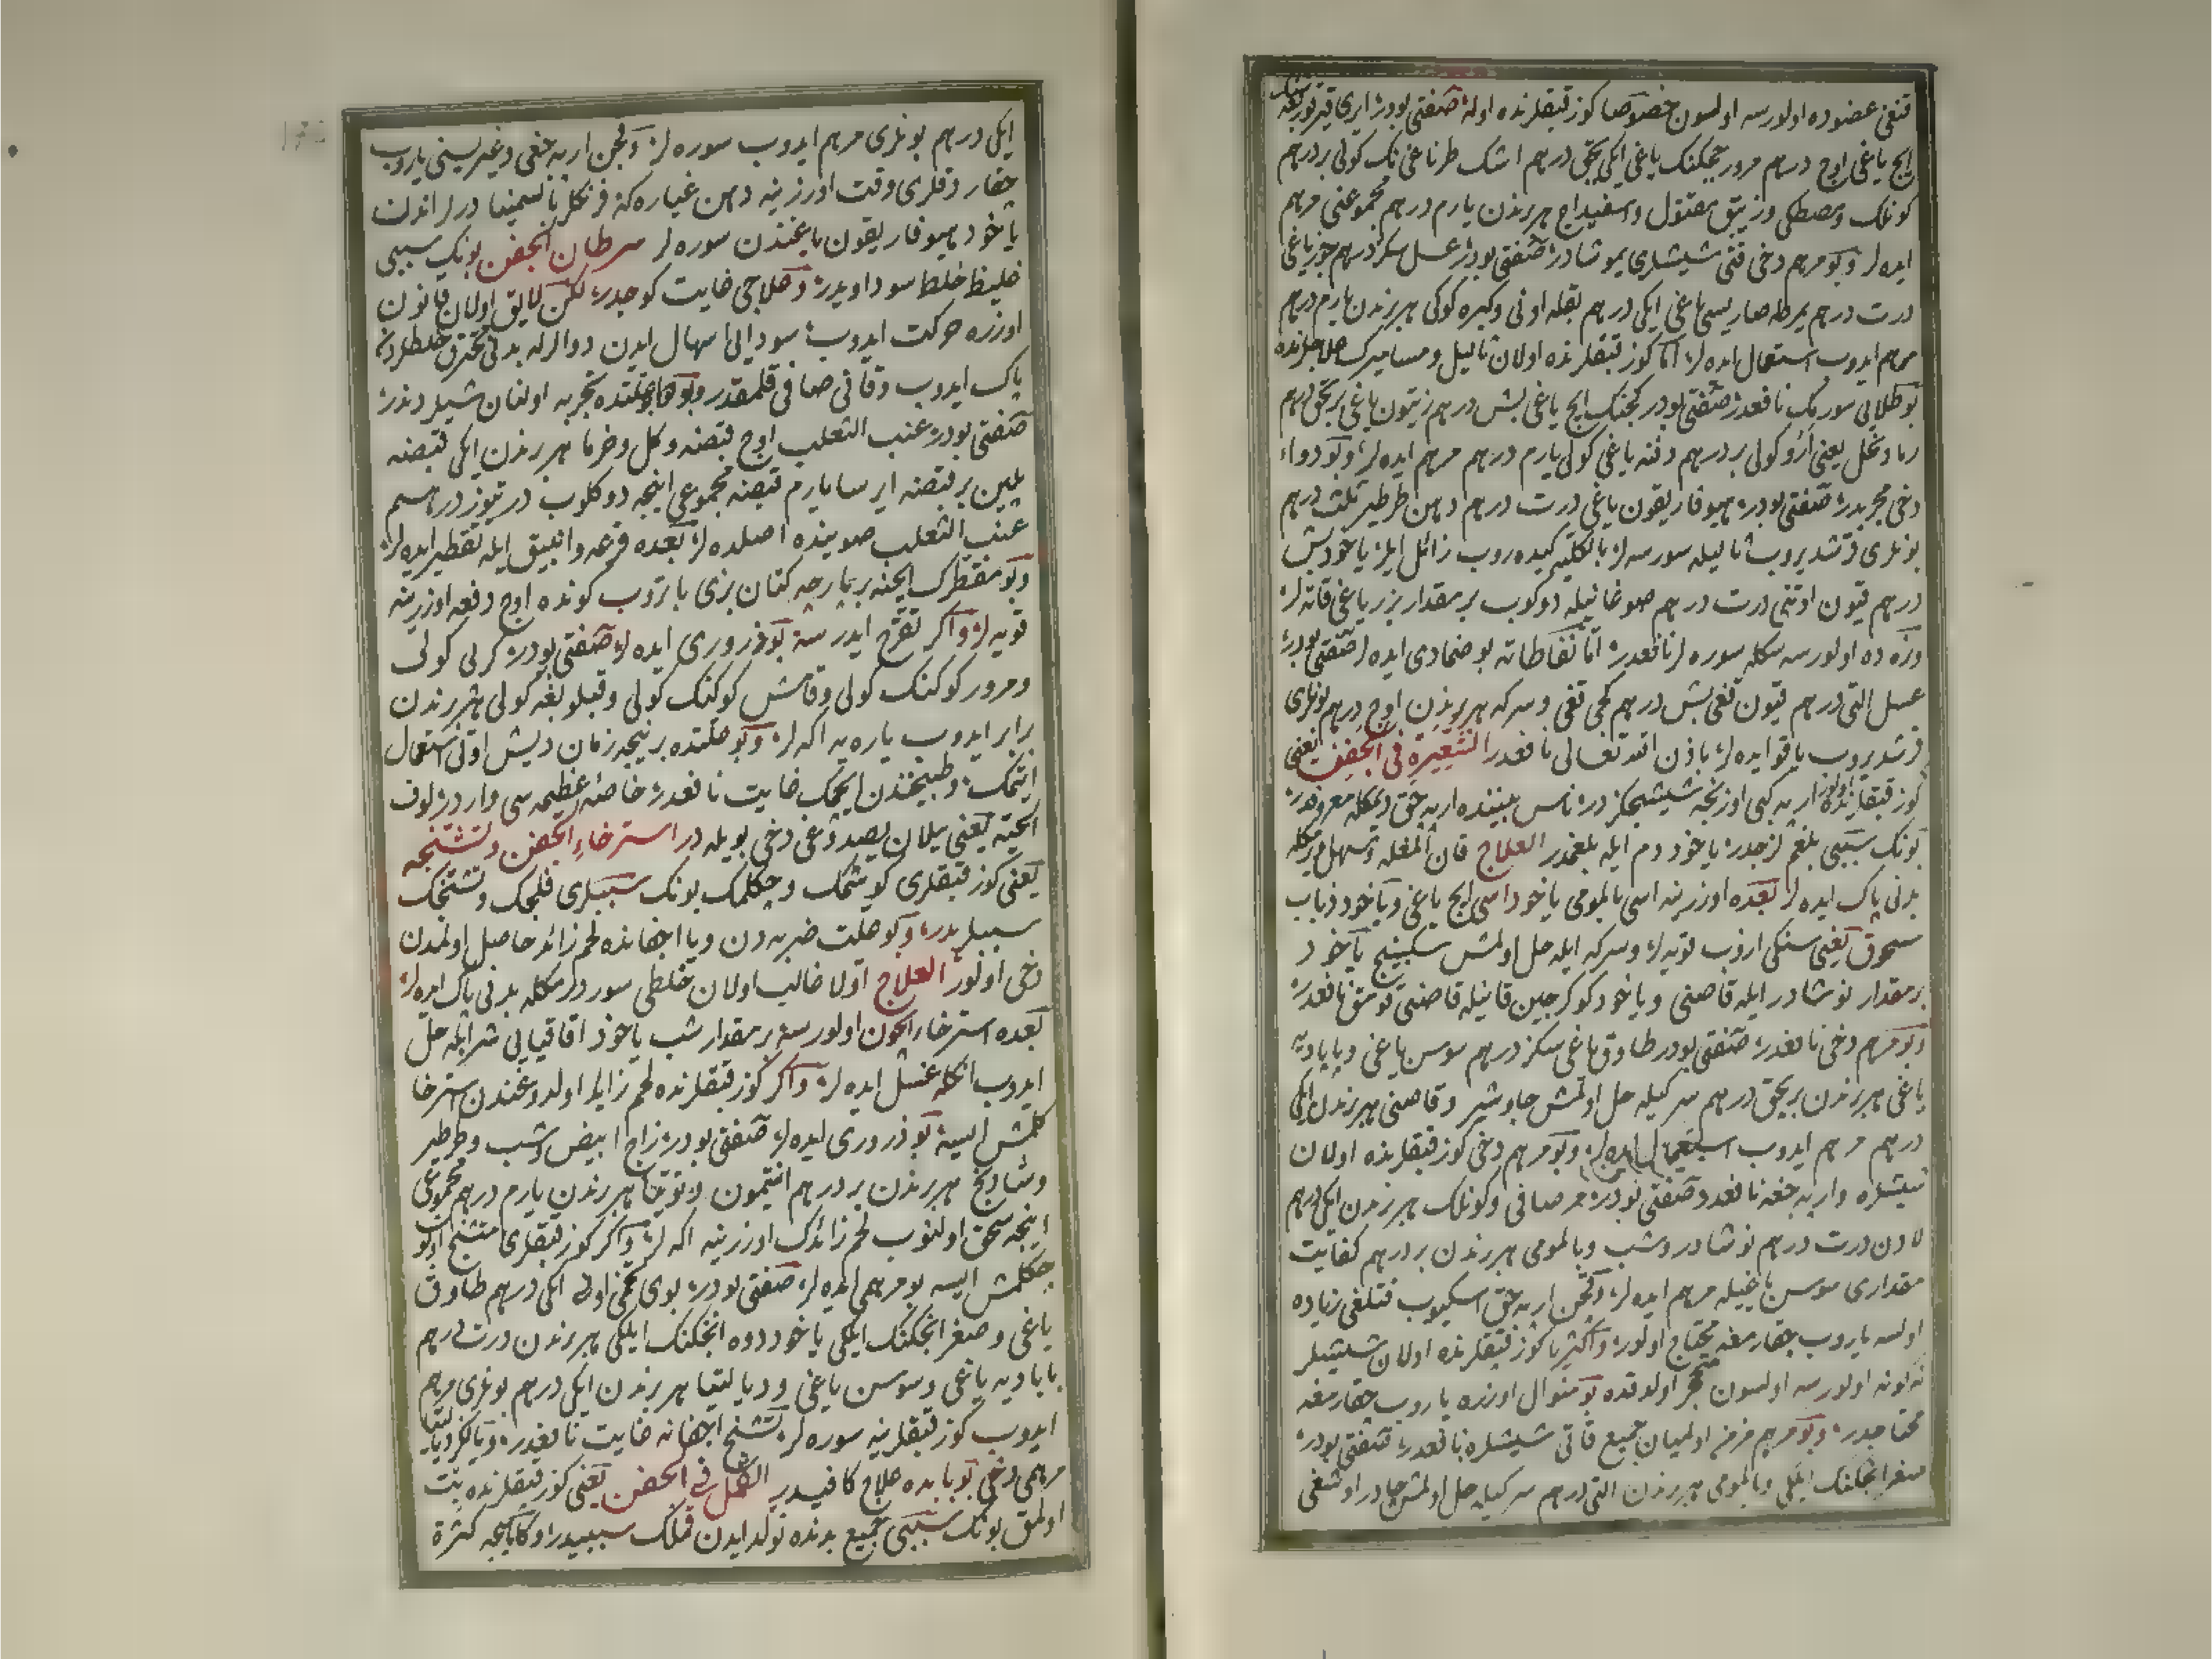 قنغی عضوده اولورسه اولسون خصوصا کوز قپقلرنده اوله صنعتی بودر
ایچ یاغی اوچ درهم مرور یاغی ایکی درهم اشک طرناغی نک کولی بر درهم
کونلک ومصطکی وزیبق مقتول واسفیداج هر برندن یارم درهم مجموعنی مرهم
ایده لر وبو مرهم دخی قتی شیشلری یومشادر صنعتی بودر عسل سکز درهم یاغی
درت درهم یمرطه صاریسی یاغی ایکی درهم بقله اونی کوکی هر برندن یارم درهم
مرهم ایدوب استعمال ایده لر اما کوز قپقلرنده اولان ثالیل ومسامیرک علاجلرنده
بو طلایی سورمک نافعدر صنعتی بودر ایچ یاغی بش درهم زیتون یاغی درهم
یعنی کولی بر درهم دفنه یاغی کولی یارم درهم مرهم ایده لر وبو دواء
دخی مجربدر صنعتی بودر هیوفاریقون یاغی درت درهم دهن طرطیر ثلث درهم
بونلری قرشدیروب ثالیله سورسه لر بالکلیه کیدروب زائل ایلر یاخود بش
درهم قیون اوتنی درت درهم صوغانیله دوکوب بر مقدار بزر یاغی قاته لر
اولورسه سکله سوره لر نافعدر اما نفاطاته بو ضمادی ایده لر صنعتی بودر
عسل التی درهم قیون قغی بش درهم کچی قغی وسرکه هر برندن اوچ درهم بونلری
قرشدیروب یاقو ایده لر باذن الله تعالی نافعدر الشعیرة فی الجفن یعنی
کوز قپقلرنده اربه کبی اوزنجه شیشجکزدر ناس بیننده اربه جق دیمکله معروفدر
بونک سببی بلغم لزجدر یاخود دم ایله بلغمدر العلاج قان المغله ومسهل ویرمکله
بدنی پاک ایده لر بعده اوزرینه اسی بالمومی یاخود اسی ایچ یاغی ویاخود ذباب
مسحوق یعنی سنکی ازوب قویه لر وسرکه ایله حل اولمش سکبینج یاخود
بر مقدار نوشادر ایله قاصنی ویاخود کوکرجین قانیله قاصنی قومق نافعدر
وبو مرهم دخی نافعدر صنعتی بودر طاوق یاغی سکز درهم سوسن یاغی وبابادیه
یاغی هر برندن بر بچق درهم سرکیله حل اولمش جاوشیر وقاصنی هر برندن ایکی
درهم مرهم ایدوب استعمال ایده لر وبو مرهم دخی کوز قپقلرنده اولان
شیشلره واربه جغه نافعدر صنعتی بودر مر صافی وکونلک هر برندن ایکی درهم
لادن درت درهم نوشادر وشب وبالمومی هر برندن بر درهم کفایت
مقداری سوسن یاغیله مرهم ایده لر وقچن اربه جق اسکیوب قتلغی زیاده
اولسه یاروب چقارمغه محتاج اولور واکثریا کوز قپقلرنده اولان شیشلر
نه کونه اولورسه اولسون متحجر اولدقده بو منوال اوزره یاروب چقارمغه
محتاجدر وبو مرهم مزمن اولمیان جمیع قاتی شیشلره نافعدر صنعتی بودر
صغر انجکنک ایلکی وبالمومی هر برندن التی درهم سرکیله حل اولمش چادر اوشغی
ایکی درهم بونلری مرهم ایدوب سوره لر وقچن اربه جغی وغیریسنی یاروب
چقاردقلری وقت اوزرینه دهن غیاره که فرنکلر بالسمنیا درلر اندن
یاخود هیوفاریقون یاغندن سوره لر سرطان الجفن بونک سببی
غلیظ خلط سوداویدر وعلاجی غایت کوجدر لکن لایق اولان قانون
اوزره حرکت ایدوب سودایی اسهال ایدن دوالرله بدنی محترق خلطلردن
پاک ایدوب وقانی صافی قلمقدر وبو علتده تجربه اولنان شیلردندر
صنعتی بودر عنب الثعلب اوچ قبضه وکل وخرما هر برندن ایکی قبضه
بر قبضه ایرسا یارم قبضه مجموعی اینجه دوکلوب درتیوز درهم
عنب الثعلب صوینده اصلده لر بعده قرعه وانبیق ایله تقطیر ایده لر
وبو مقطرک ایچنه بر پارچه کتان بزی باتروب کونده اوچ دفعه اوزرینه
قویه لر واکر تقرح ایدرسه بو ذروری ایده لر صنعتی بودر کرلی کولی
ومرور کوکنک کولی وقامش کوکنک کولی وقبلو بغه کولی هر برندن
برابر ایدوب یاره یه اکه لر وبو علتده بر نیجه زمان دیش اوتی استعمال
ایتمک وطبیخندن ایچمک غایت نافعدر خاصه عظیمه سی واردر لوف
الحیه یعنی ییلان یصدوغی دخی بویله در استرخاء الجفن وتشنجه
یعنی کوز قپقلری کوشمک وچکلمک بونک سببلری فلجک وتشنجک
سببلریدر وبو علت ضربه دن ویا اجفانده لحم زائد حاصل اولمدن
دخی اولور العلاج اولا غالب اولان خلطی سوردرمکله بدنی پاک ایده لر
بعده استرخاء ایچون اولورسه بر مقدار شب یاخود اقاقیایی شرابله حل
ایدوب انکله غسل ایده لر واکر کوز قپقلرنده لحم زاید اولدوغندن استرخا
کلمش ایسه بو ذروری ایده لر صنعتی بودر زاج ابیض وشب وطرطیر
وشادنج هر برندن بر درهم افتیمون وتوتیا هر برندن یارم درهم مجموعی
اینجه سحق اولنوب لحم زائدک اوزرینه اکه لر واکر کوز قپقلری متشنج اولوب
چکلمش ایسه بو مرهمی ایده لر صنعتی بودر بوی تخمی اونی ایکی درهم طاوق
یاغی وصغر انجکنک ایلکی یاخود دوه انجکنک ایلکی هر برندن درت درهم
بابادیه یاغی وسوسن یاغی ودیالتیا هر برندن ایکی درهم بونلری مرهم
ایدوب کوز قپقلرینه سوره لر تشنج اجفانه غایت نافعدر ویالکز دیالتیا
مرهمی دخی بو بابده علاج کافیدر القمل فی الجفن یعنی کوز قپقلرنده بت
اولمق بونک سببی جمیع بدنده تولد ایدن قملک سببیدر اوکا بیجه کثرة